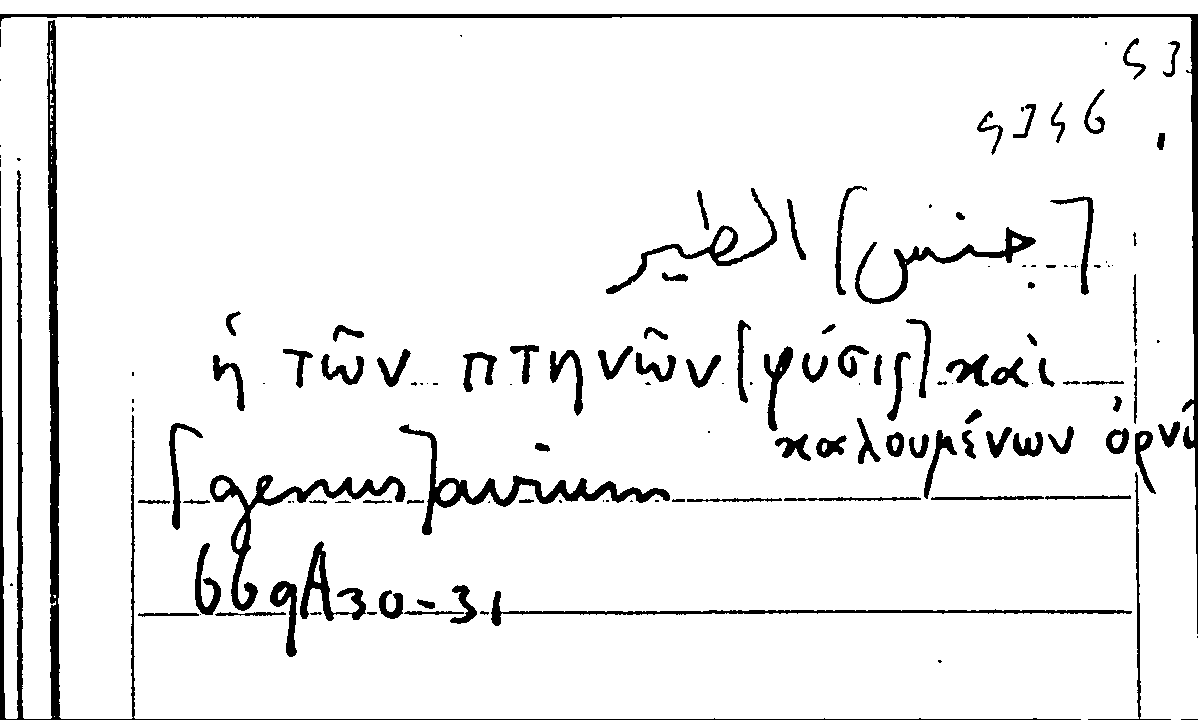 [جنس] الطير
ἡ τῶν πτηνῶν [φύσις] καὶ
καλουμένων
[genus] avium
669A30-31